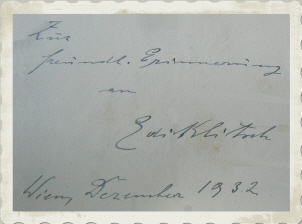 Zur
freundl. Erinnerung
an
Edi Klitsch
Wien, Dezember 1932